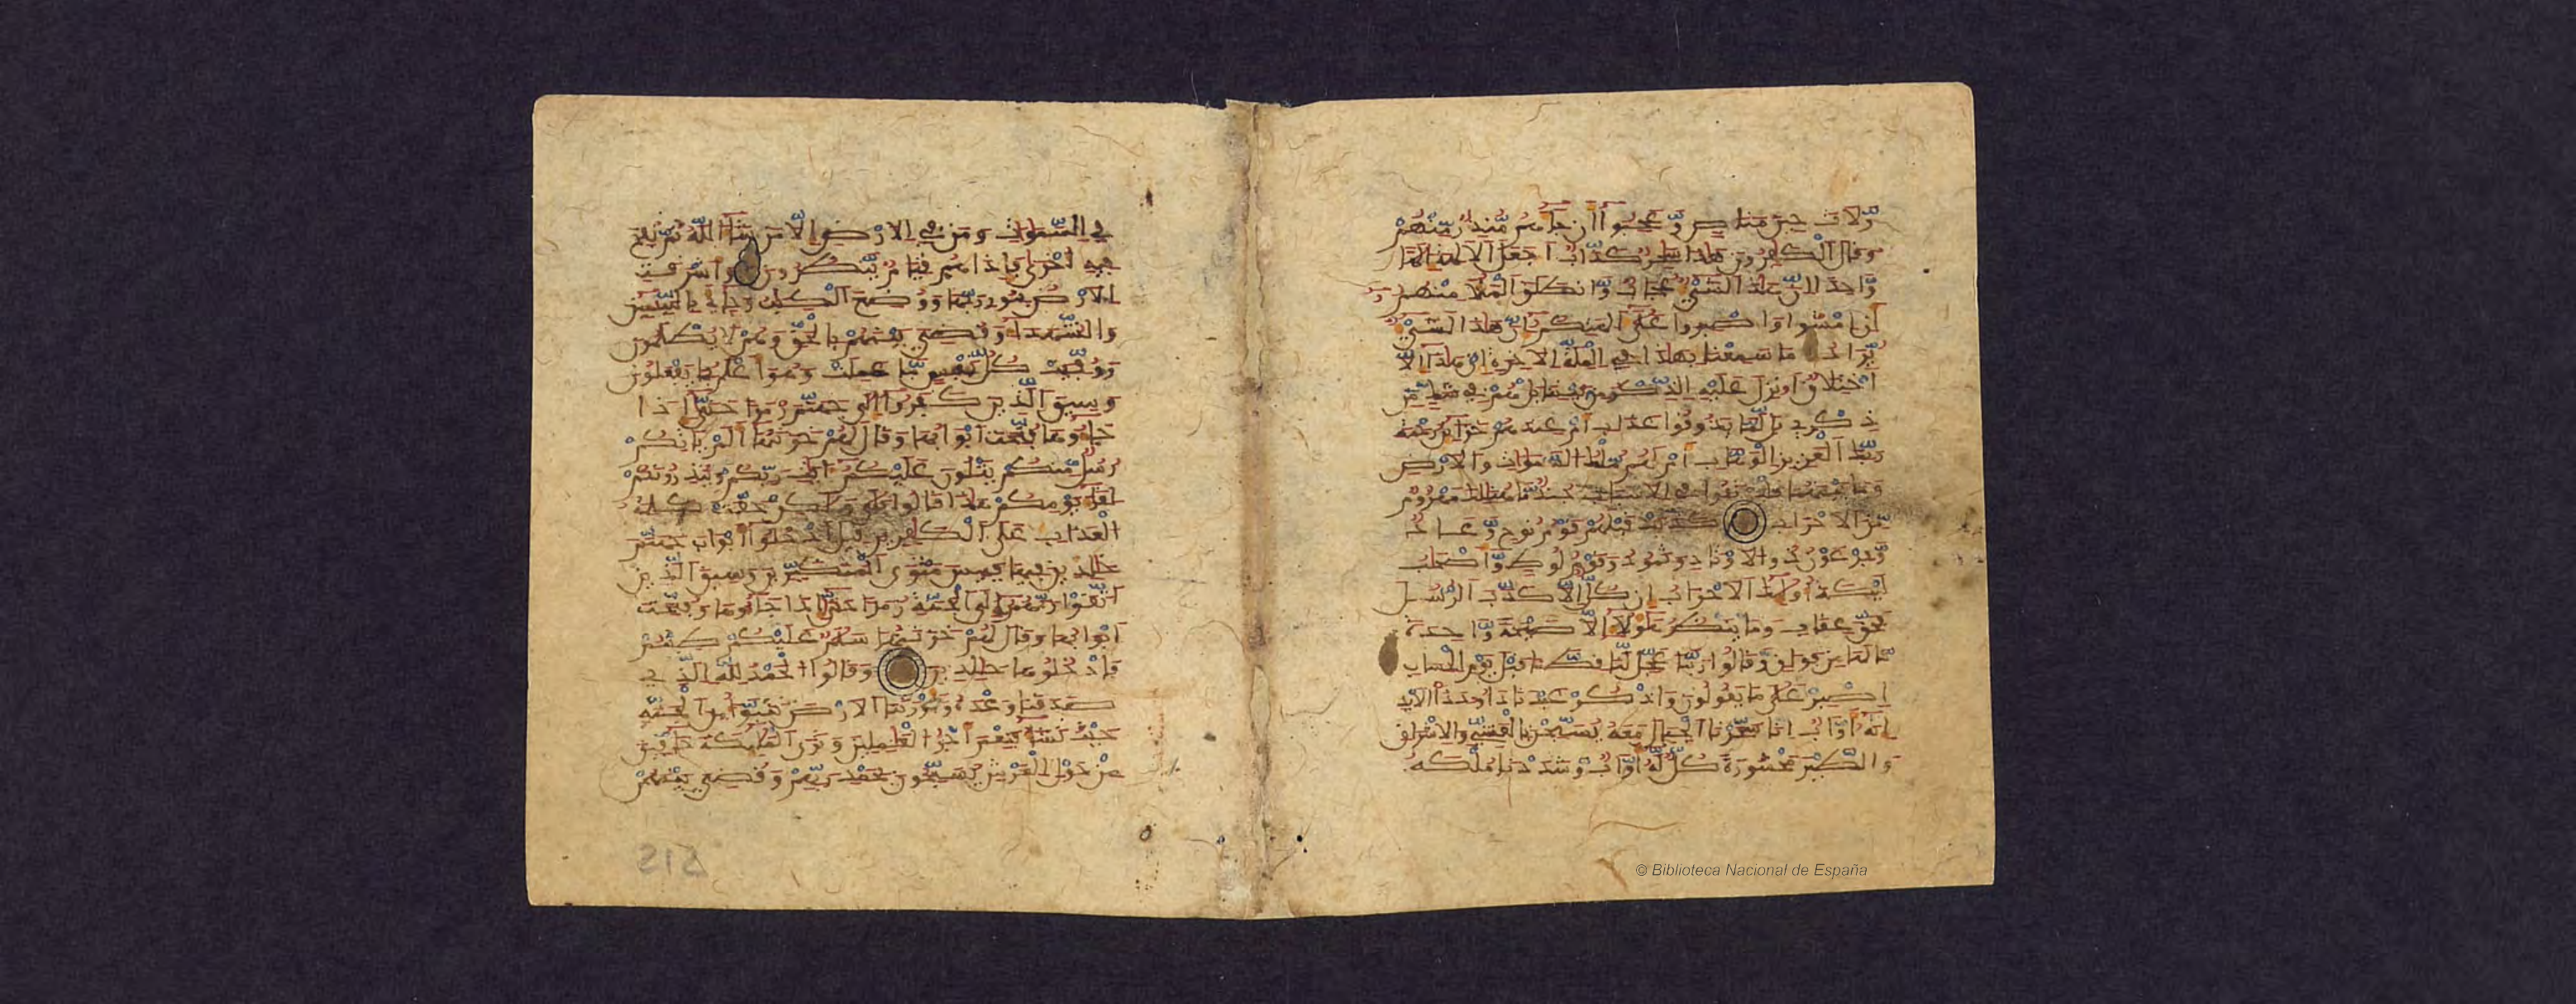 ولات حين مناص وعجبوا ان جاهم منذر منهم
وقال الكفرون هذا سحر كذاب اجعل الالهة الها
واحدا ان هذا لشي عجاب وانطلق الملا منهم
ان امشوا واصبروا على الهتكم ان هذا لشي
يراد ما سمعنا بهذا في الملة الاخرة ان هذا الا
اختلاق اونزل عليه الذكر من بيننا بل هم في شك من
ذكري بل لما يذوقوا عذاب ام عندهم خزاين رحمة
ربك العزيز الوهاب ام لهم ملك السموات والارض
وما بينهما فليرتقوا في الاسباب جند ما هنالك مهزوم
من الاحزاب كذبت قبلهم قوم نوح وعاد
وفرعون ذو الاوتاد وثمود وقوم لوط واصحاب
ليكة اوليك الاحزاب ان كل الا كذب الرسل
فحق عقاب وما ينظر هولا الا صيحة واحدة
ما لها من فواق وقالوا ربنا عجل لنا قطنا قبل يوم الحساب
اصبر على ما يقولون واذكر عبدنا داود ذا الايد
انه اواب انا سخرنا الجبال معه يسبحن بالعشي والاشراق
والطير محشورة كل له اواب وشددنا ملكه
في السموات ومن في الارض الا من شا الله ثم نفخ
فيه اخرى فاذا هم قيام ينظرون واشرقت
الارض بنور ربها ووضع الكتب وجاي بالنبيين
والشهدا وقضي بينهم بالحق وهم لا يظلمون
ووفيت كل نفس ما عملت وهو اعلم بما يفعلون
وسيق الذين كفروا الى جهنم زمرا حتى اذا
جاوها فتحت ابوابها وقال لهم خزنتها الم ياتكم
رسل منكم يتلون عليكم ايت ربكم وينذرونكم
لقا يومكم هذا قالوا بلى ولكن حقت كلمة
العذاب على الكفرين قيل ادخلوا ابواب جهنم
خلدين فيها فبيس مثوى المتكبرين وسيق الذين
اتقوا ربهم الى الجنة زمرا حتى اذا جاوها وفتحت
ابوابها وقال لهم خزنتها سلم عليكم طبتم
فادخلوها خلدين وقالوا الحمد لله الذي
صدقنا وعده واورثنا الارض نتبوا من الجنة
حيث نشا فنعم اجر العملين وترى المليكة حافين
من حول العرش يسبحون بحمد ربهم وقضي بينهم
212
© Biblioteca Nacional de España